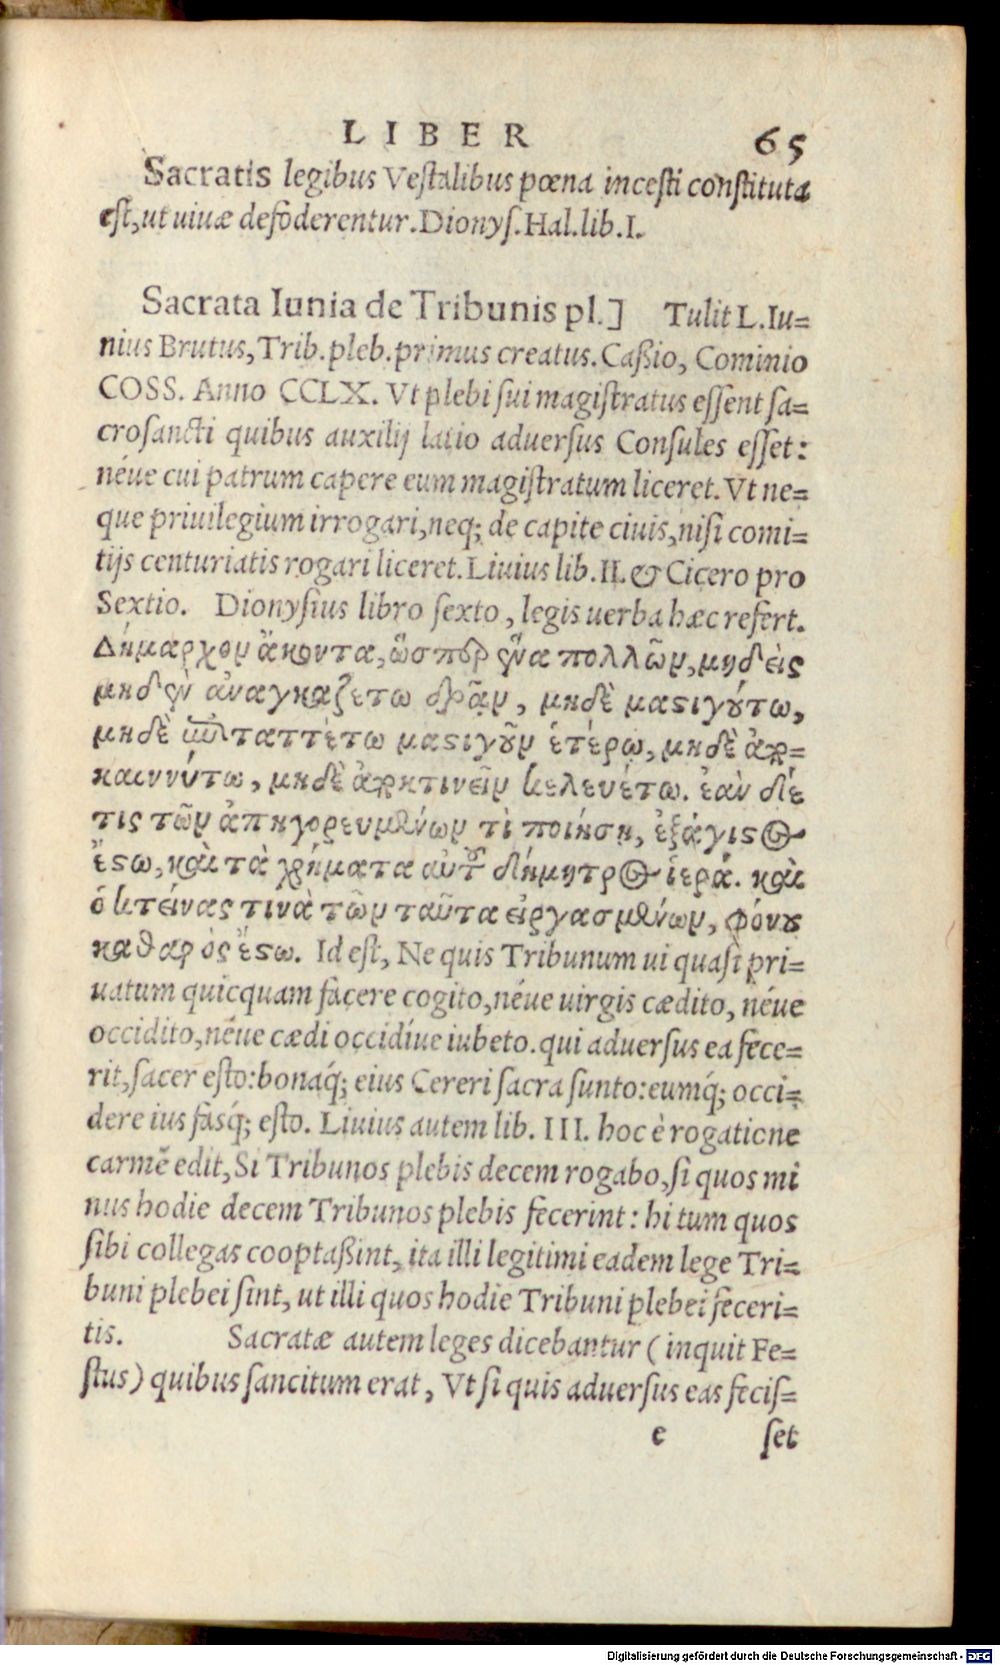 LIBER 65
Sacratis legibus Vestalibus pœna incesti constituta
est, ut uiuæ defoderentur. Dionys. Hal. lib. I.
Sacrata Iunia de Tribunis pl.] Tulit L. Iu=
nius Brutus, Trib. pleb. primus creatus. Caßio, Cominio
COSS. Anno CCLX. Vt plebi sui magistratus essent sa=
crosancti quibus auxilij latio aduersus Consules esset:
néue cui patrum capere eum magistratum liceret. Vt ne=
que priuilegium irrogari, neq; de capite ciuis, nisi comi=
tijs centuriatis rogari liceret. Liuius lib. II. & Cicero pro
Sextio. Dionysius libro sexto, legis uerba hæc refert.
Δήμαρχον ἄκοντα, ὥσπερ ἕνα πολλῶν, μηδεὶς
μηδὲν ἀναγκαζέτω δρᾶν, μηδὲ μαστιγούτω,
μηδὲ ἐπιταττέτω μαστιγοῦν ἑτέρῳ, μηδὲ ἀπο=
καιννύτω, μηδὲ ἀποκτινεῖν κελευέτω. ἐὰν δέ
τις τῶν ἀπηγορευμένων τὶ ποιήσῃ, ἐξάγιστος
ἔστω, καὶ τὰ χρήματα αὐτοῦ δήμητρος ἱερά. καὶ
ὁ κτείνας τινὰ τῶν ταῦτα εἰργασμένων, φόνου
καθαρὸς ἔστω. Id est, Ne quis Tribunum ui quasi pri=
uatum quicquam facere cogito, néue uirgis cædito, néue
occidito, néue cædi occidíue iubeto. qui aduersus ea fece=
rit, sacer esto: bonaq́; eius Cereri sacra sunto: eumq́; occi=
dere ius fasq́; esto. Liuius autem lib. III. hoc è rogatione
carmē edit, Si Tribunos plebis decem rogabo, si quos mi
nus hodie decem Tribunos plebis fecerint: hi tum quos
sibi collegas cooptaßint, ita illi legitimi eadem lege Tri=
buni plebei sint, ut illi quos hodie Tribuni plebei feceri=
tis. Sacratæ autem leges dicebantur (inquit Fe=
stus) quibus sancitum erat, Vt si quis aduersus eas fecis=
e set
Digitalisierung gefördert durch die Deutsche Forschungsgemeinschaft - DFG